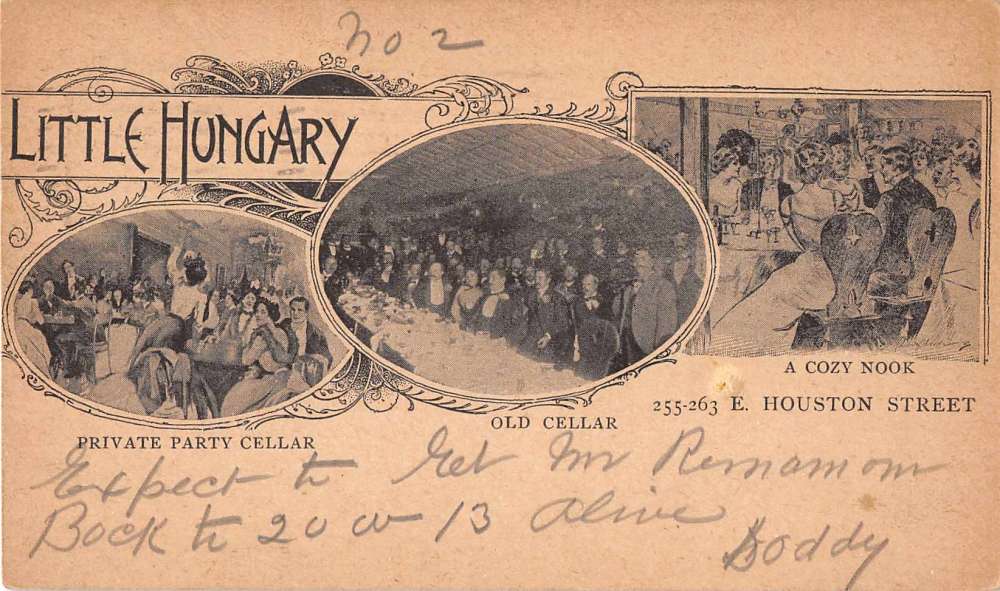 No 2
LITTLE HUNGARY
PRIVATE PARTY CELLAR
OLD CELLAR
A COZY NOOK
255-263 E. HOUSTON STREET
Expect to Get Mr
Back to 20 W 13 Alive
Doddy